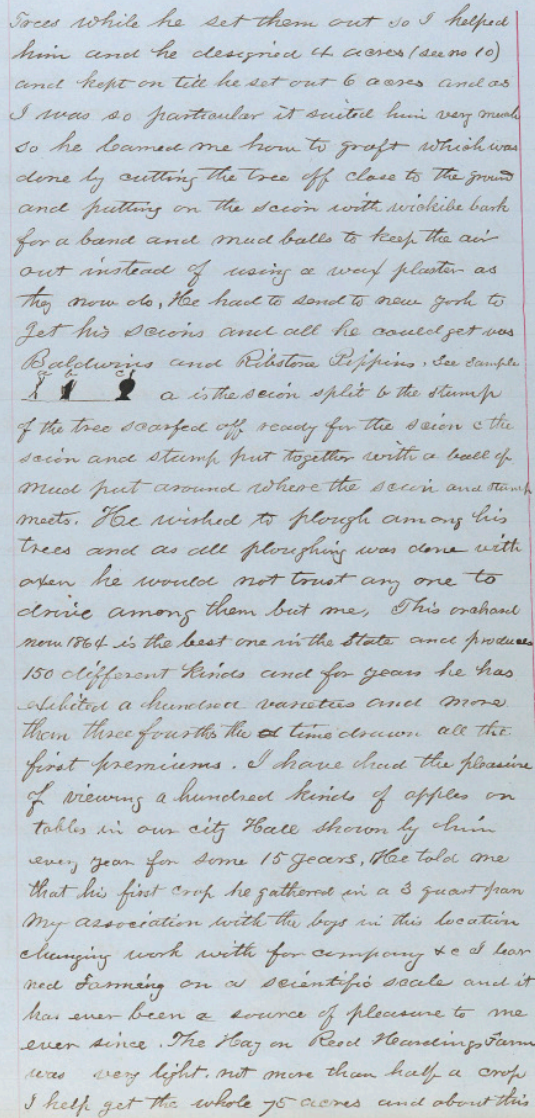 Trees while he set them out so I helped
him and he designed 4 acres (see no 10)
and kept on till he set out 6 acres and as
I was so particular it suited him very much
so he learned me how to graft which was
done by cutting the tree off close to the ground
and putting on the scion with wickibe bark
for a band and mud balls to keep the air
out instead of using a wax plaster as
they now do, He had to send to new york to
get his scions and all he could get was
Baldwins and Ribstone Pippins. See sample
a b c
a is the scion split b the stump
of the tree scarfed off ready for the scion c the
scion and stump put together with a ball of
mud put around where the scion and stump
meets. He wished to plough among his
trees and as all ploughing was done with
oxen he would not trust any one to
drive among them but me, This orchard
now 1864 is the best one in the State and produces
150 different kinds and for years he has
exhibited a hundred varieties and more
than three fourths the time drawn all the
first premiums. I have had the pleasure
of viewing a hundred kinds of apples on
tables in our city Hall shown by him
every year for some 15 years, He told me
that his first crop he gathered in a 3 quart pan
My association with the boys in this location
changing work with for company &c I lear
ned Farming on a scientific scale and it
has ever been a source of pleasure to me
ever since. The Hay on Reed Hardings Farm
was very light. not more than half a crop
I help get the whole 75 acres and about this